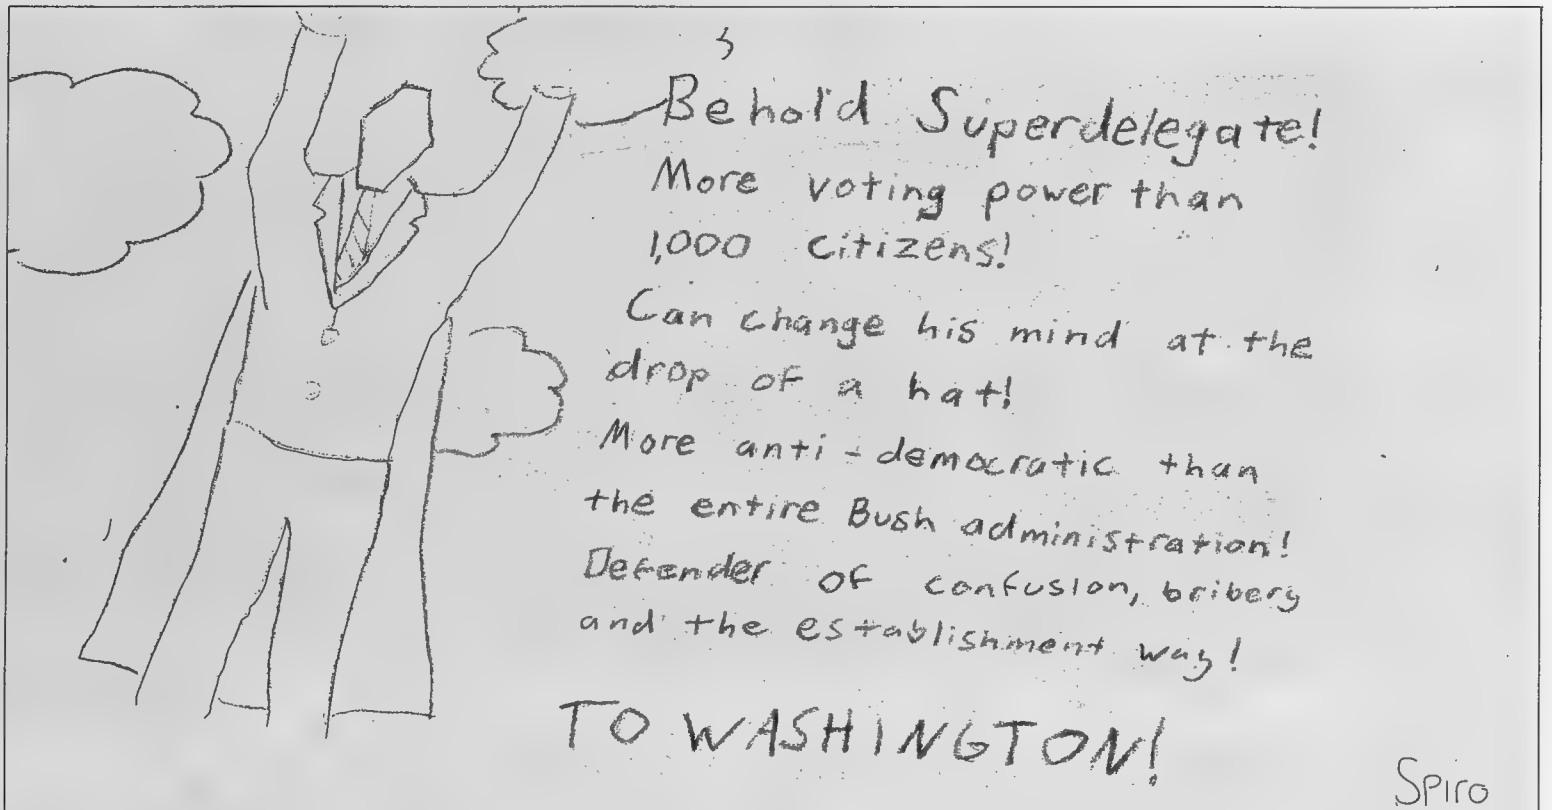 Behold Superdelegate!
More voting power than
1,000 citizens!
Can change his mind at the
drop of a hat!
More anti-democratic than
the entire Bush administration!
Defender of confusion, bribery
and the establishment way!
TO WASHINGTON!
Spiro